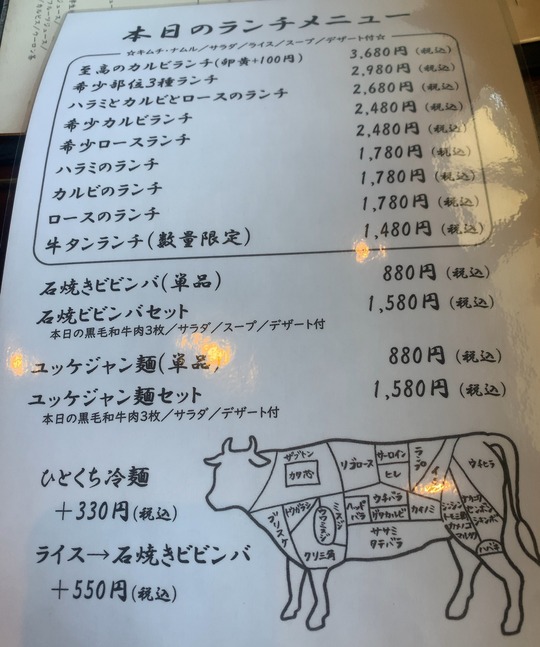 本日のランチメニュー
☆キムチ・ナムル／サラダ／ライス／スープ／デザート付☆
至高のカルビランチ(卵黄+100円) 3,680円(税込)
希少部位3種ランチ 2,980円(税込)
ハラミとカルビとロースのランチ 2,680円(税込)
希少カルビランチ 2,480円(税込)
希少ロースランチ 2,480円(税込)
ハラミのランチ 1,780円(税込)
カルビのランチ 1,780円(税込)
ロースのランチ 1,780円(税込)
牛タンランチ(数量限定) 1,480円(税込)
石焼きビビンバ(単品) 880円(税込)
石焼ビビンバセット 1,580円(税込)
本日の黒毛和牛肉3枚／サラダ／スープ／デザート付
ユッケジャン麺(単品) 880円(税込)
ユッケジャン麺セット 1,580円(税込)
本日の黒毛和牛肉3枚／サラダ／デザート付
ひとくち冷麺
+330円(税込)
ライス→石焼きビビンバ
+550円(税込)
ザブトン
カタ芯
リブロース
サーロイン
ヒレ
ランプ
ウチヒラ
ブリスケ
トウガラシ
ミスジ
クリ三角
ウチバラ
ゲタカルビ
カイノミ
ササミ
タテバラ
シンシン
トモ三角
カメノコ
マルカワ
ハバキ